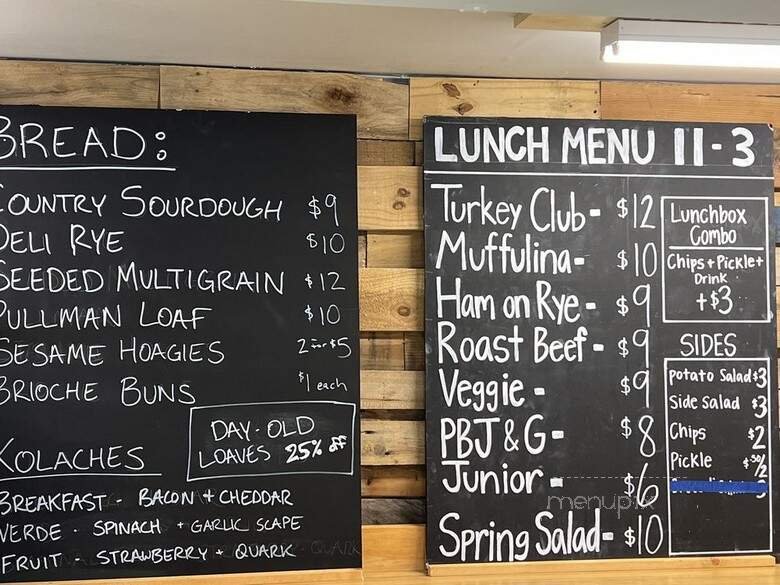 BREAD:
COUNTRY SOURDOUGH $9
DELI RYE $10
SEEDED MULTIGRAIN $12
PULLMAN LOAF $10
SESAME HOAGIES 2 for $5
BRIOCHE BUNS $1 each
DAY-OLD
LOAVES 25% off
KOLACHES
BREAKFAST - BACON + CHEDDAR
VERDE - SPINACH + GARLIC SCAPE
FRUIT - STRAWBERRY + QUARK
LUNCH MENU 11-3
Turkey Club - $12
Muffulina - $10
Ham on Rye - $9
Roast Beef - $9
Veggie - $9
PBJ & G - $8
Junior - $6
Spring Salad - $10
Lunchbox
Combo
Chips + Pickle +
Drink
+$3
SIDES
potato Salad $3
Side Salad $3
Chips $2
Pickle $.50/2
menupix